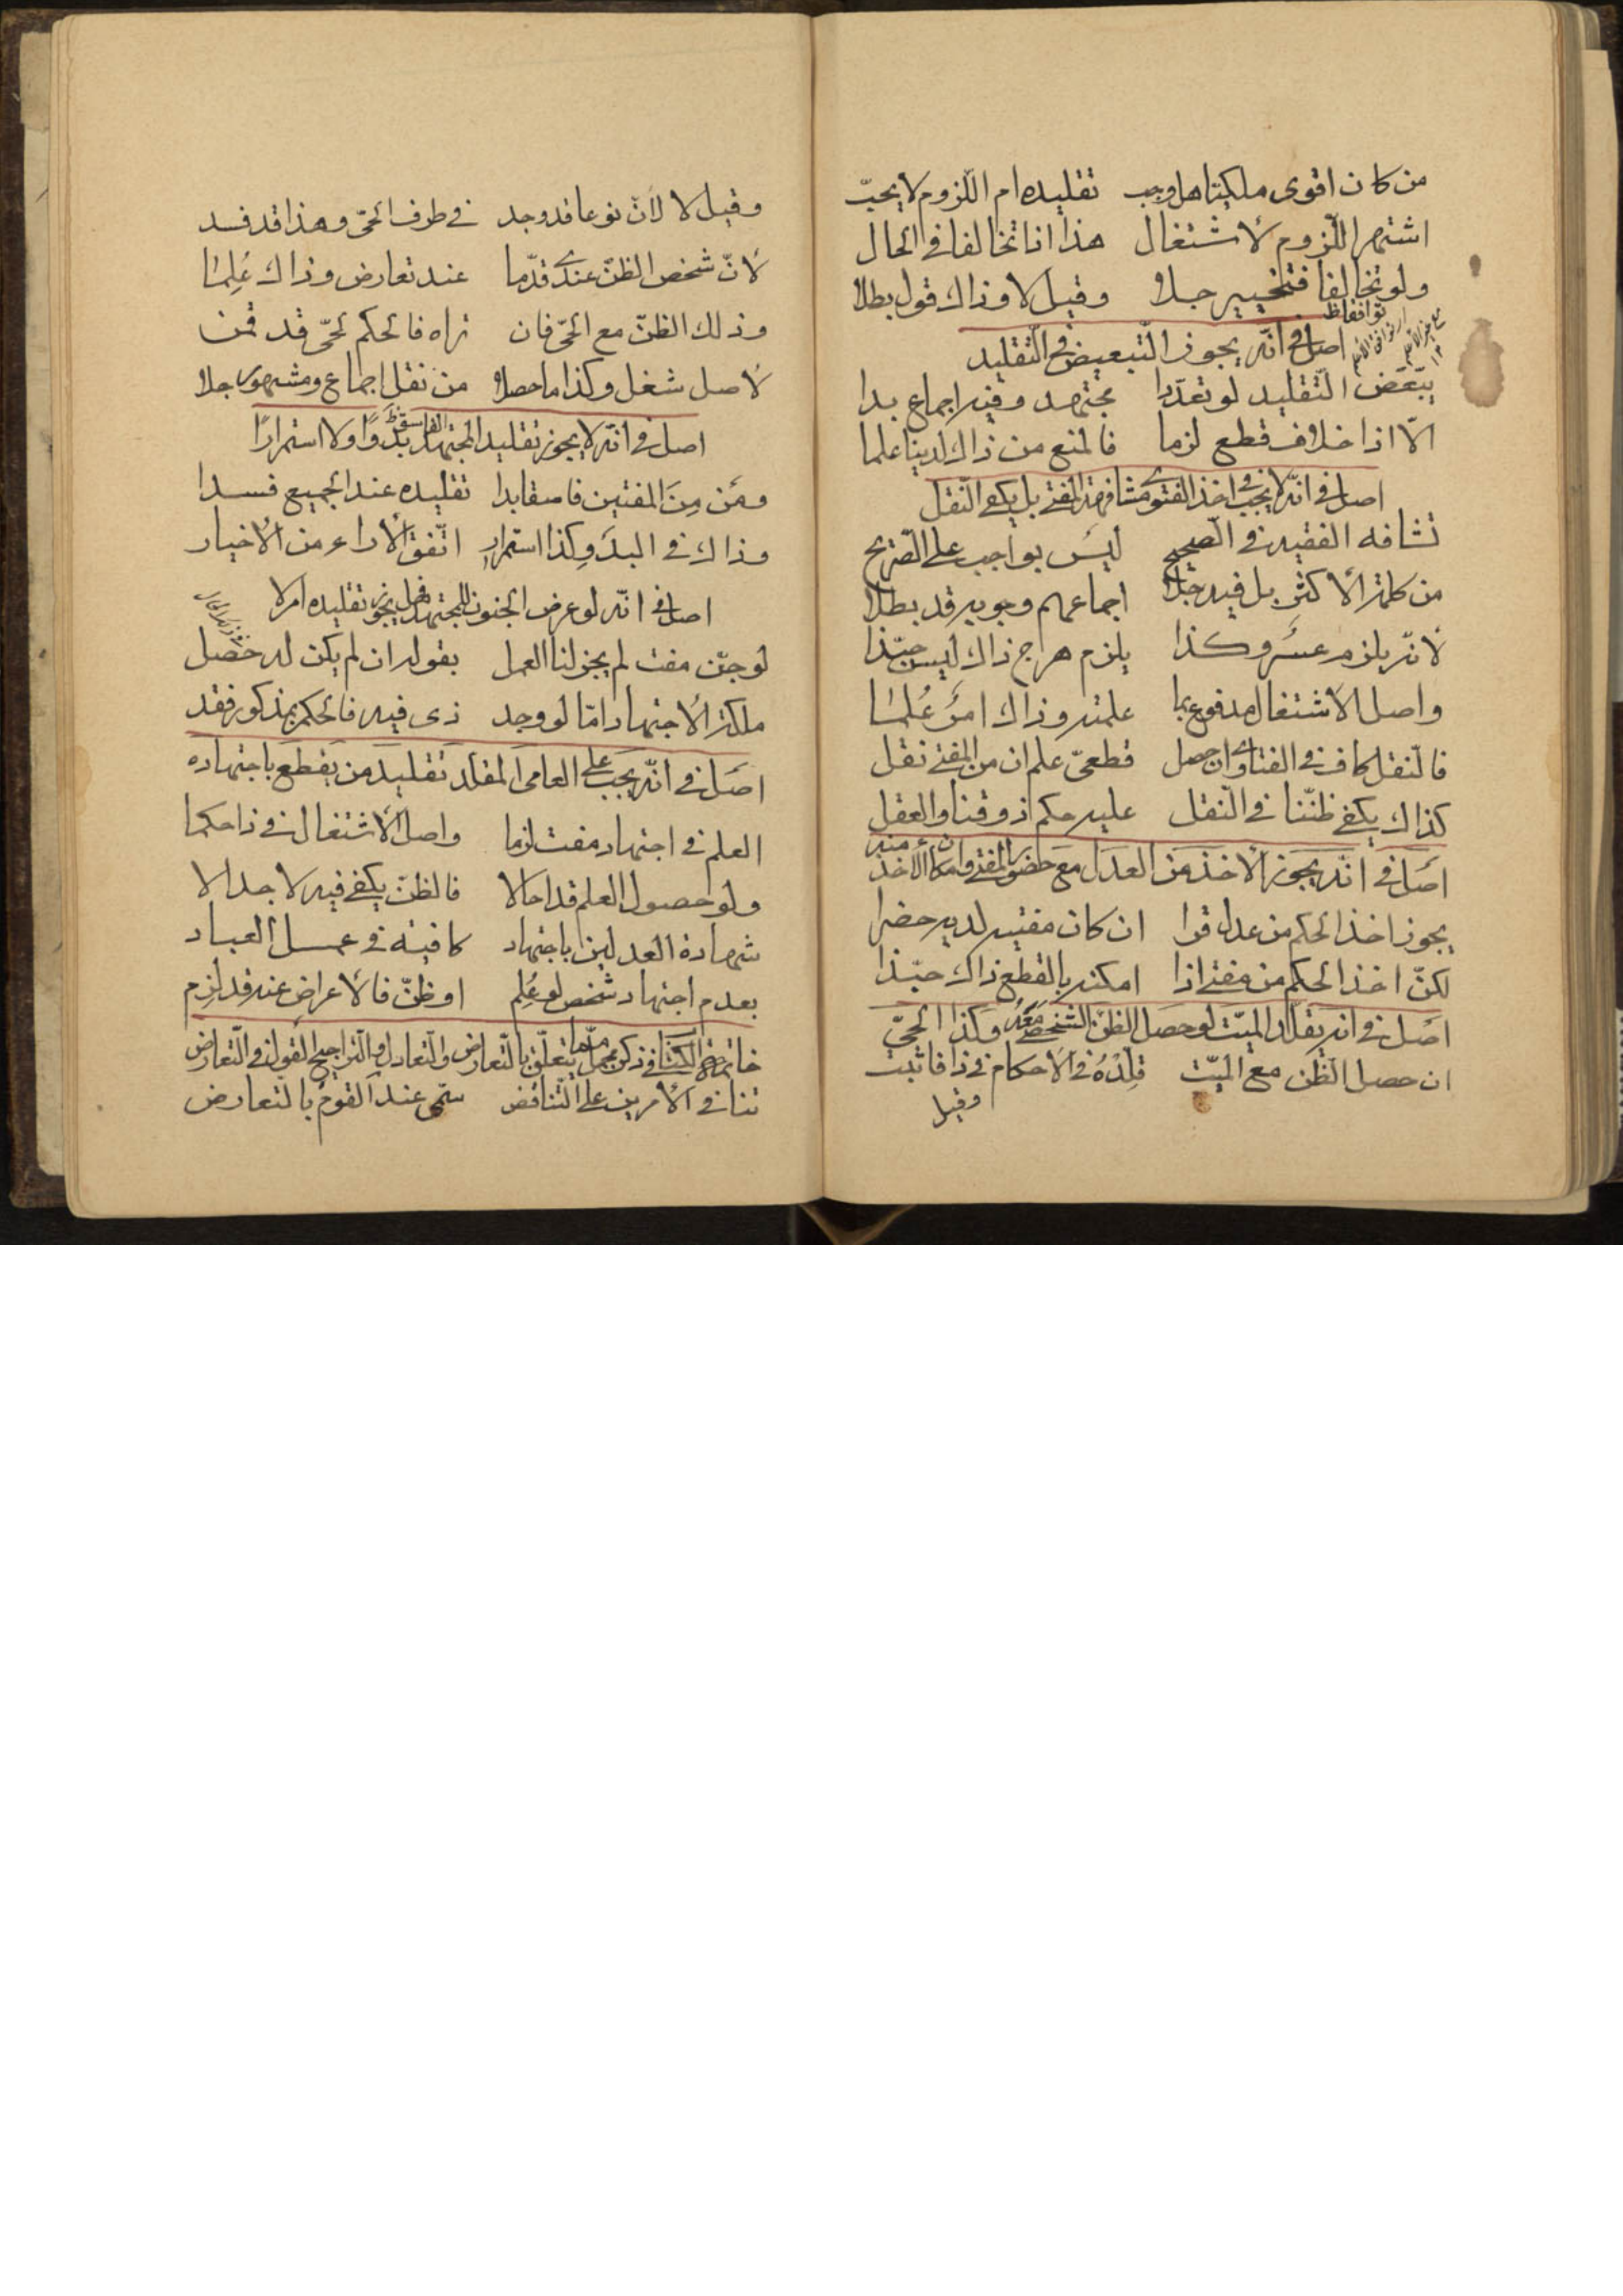 من كان اقوى ملكيتا هل وجب تقليده ام اللزوم لا يجبّ
اشتهر اللّزوم لأشتغال هذا اذا تخالفا في الحال
ولو تخالفا فتخيير جلا وقيل لا وذاك قول بطلا
توافقا ظ
اصل في انّه يجوز التّبعيض في التّقليد
يبّعّض التّقليد لو تعدّدا مجتهد وفيه اجماع بدا
الّا اذا خلاف قطع لزما فالمنع من ذاك لدينا علما
اصل في انّه لا يجب في اخذ الفتوى مشافهة المفتي بل يكفي النّقل
تشافه الفقيه في الصّحيح ليس بواجب على الصّريح
من كلمة الأكثر بل فيه جلا اجماعهم وجوبه قد بطلا
لأنّه يلزم عسر وكذا يلزم هرج ذاك ليس حبّذا
واصل الأشتغال مدفوع بما علمته وذاك امر عُلما
فالنّقل كاف في الفتاوى ان حصل قطعيّ علم ان من المفتي نقل
كذاك يكفي ظنّنا في النّقل عليه حكم ذوقنا والعقل
اصل في انّه يجوز الأخذ من العدل مع حضور المفتي وامكان الأخذ منه
يجوز اخذ الحكم من عدل قرا ان كان مفتيه لديه حضرا
لكنّ اخذ الحكم من مفتي اذا امكنه بالقطع ذاك حبّذا
اصل في انه يقلّد الميّت لو حصل الظنّ الشّخصي معه وكذا الحيّ
ان حصل الظن مع الميّت قلِّدهُ في الاحكام في ذا فاثبت
وقيل
وقيل لا لأنّ نوعا قد وجد في طرف الحيّ وهذا قد فسد
لأنّ شخص الظنّ عندي قدّما عند تعارض وذاك عُلِما
وذلك الظنّ مع الحيّ فان تراه فالحكم لحيّ قد قمن
لأصل شغل وكذا ما حصلا من نقل اجماع ومشهور جلا
اصل في انّه لا يجوز تقليد المجتهد الفاسق بدوًا ولا استمرارًا
ومَن مِنَ المفتين فاسقا بدا تقليده عند الجميع فسدا
وذاك في البدَو كذا استمرار اتّفق الأراء من الأخيار
اصل في انّه لو عرض الجنون للمجتهد فهل يجوز تقليده ام لا
لو جنّ مفت لم يجز لنا العمل بقوله ان لم يكن له حصل
ملكة الأجتهاد امّا لو وجد ذي فيه فالحكم بمذكور فقد
اصل في انّه يجب على العامي المقلد تقليد من يقطع باجتهاده
العلم في اجتهاد مفت لزما واصل الأشتغال في ذا حكما
ولو حصول العلم قد احالا فالظنّ يكفي فيه لا جدالا
شهادة العدلين باجتهاد كافية في عمل العباد
بعدم اجتهاد شخص لو عُلِم او ظنّ فالأعراض عنه قد لزم
خاتمة الكتاب في ذكر مجمل ممّا يتعلّق بالتّعارض والتّعادل والتّراجيح القول في التّعارض
تنافي الأمرين على التّناقض سمّي عند القوم بالتّعارض